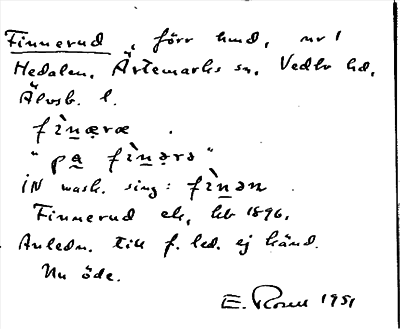 Finnerud, förr hmd, nr 1
Medalen, Ärtemarks sn, Vedbo hd,
Älvsb. l.
fìn̲æræ .
"pa̲ fìn̲ərə"
IN mask. sing: fìn̲ən
Finnerud ek, kb 1896.
Anledn. till f. led. ej känd.
Nu öde.
E. Rosell 1951